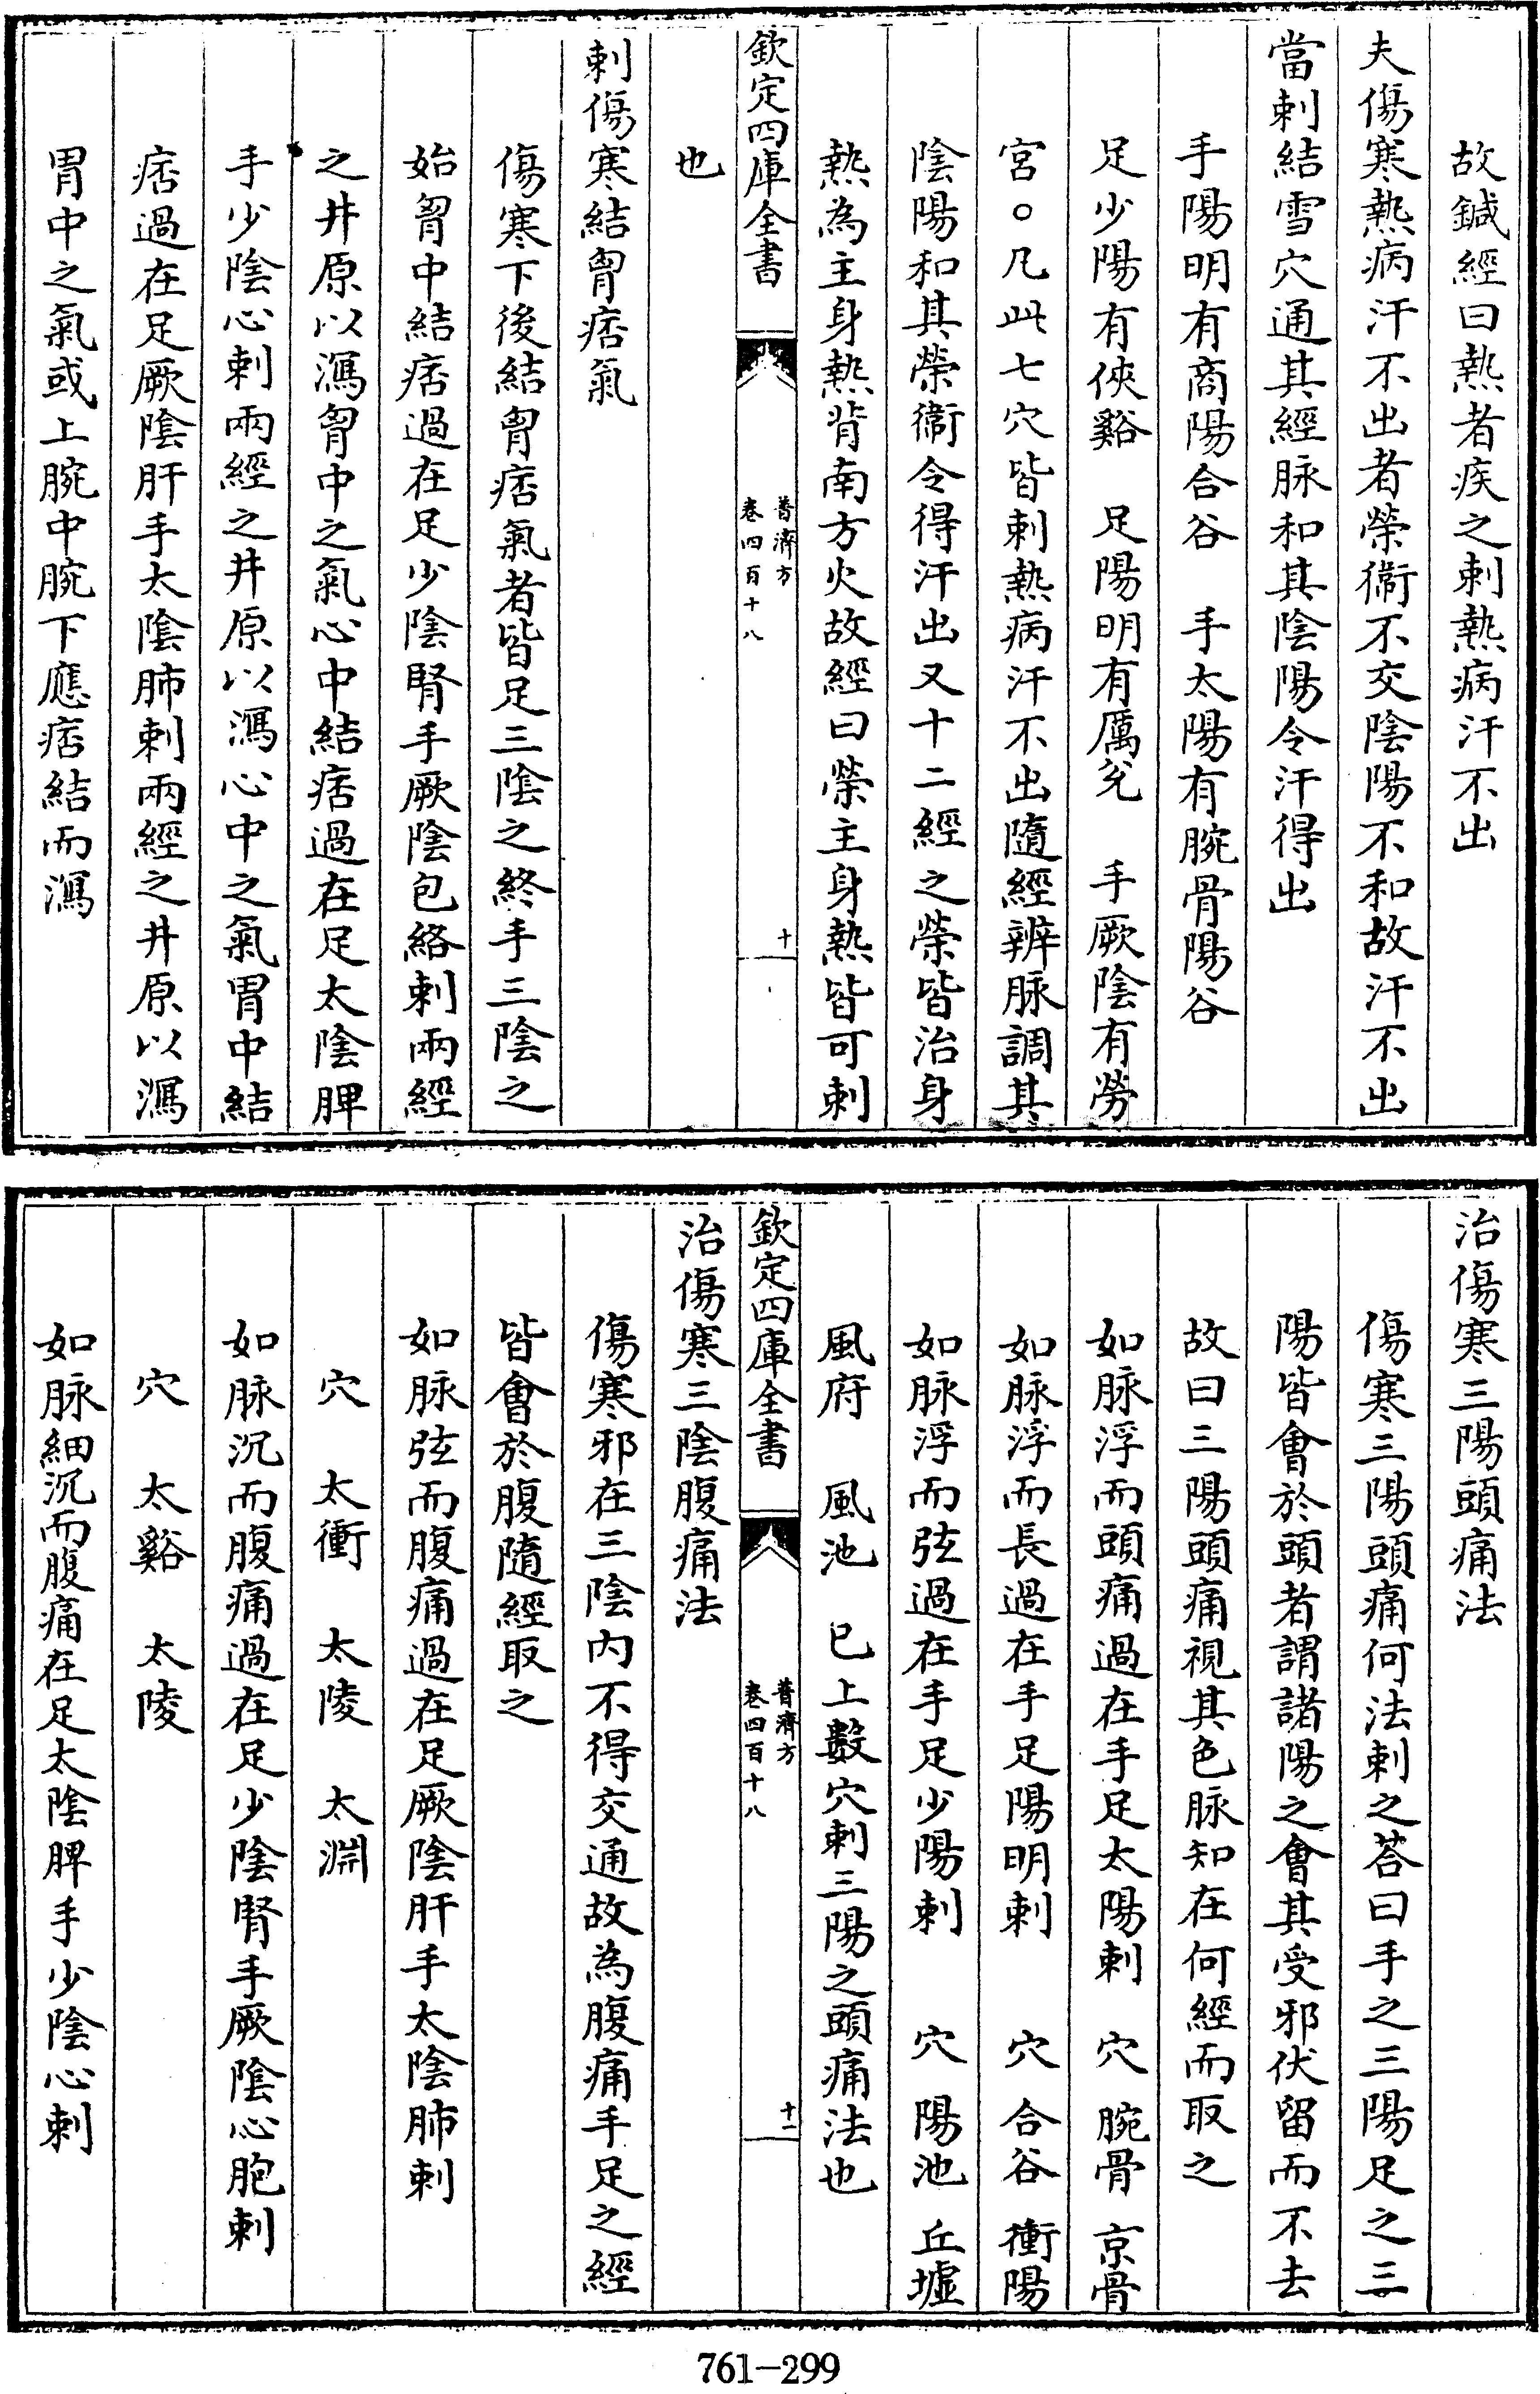 故鍼經曰熱者疾之刺熱病汗不出
夫傷寒熱病汗不出者榮衞不交陰陽不和故汗不出
當刺結雪穴通其經脉和其陰陽令汗得出
手陽明有商陽合谷　手太陽有腕骨陽谷
足少陽有俠谿　足陽明有厲兌　手厥陰有勞
宮○凡此七穴皆刺熱病汗不出隨經辨脉調其
陰陽和其榮衞令得汗出又十二經之榮皆治身
熱為主身熱背南方火故經曰榮主身熱皆可刺
欽定四庫全書
普濟方
卷四百十八
十
也
刺傷寒結胷痞氣
傷寒下後結胷痞氣者皆足三陰之終手三陰之
始胷中結痞過在足少陰腎手厥陰包絡刺兩經
之井原以瀉胷中之氣心中結痞過在足太陰脾
手少陰心刺兩經之井原以瀉心中之氣胃中結
痞過在足厥陰肝手太陰肺刺兩經之井原以瀉
胃中之氣或上腕中腕下應痞結而瀉
治傷寒三陽頭痛法
傷寒三陽頭痛何法刺之荅曰手之三陽足之三
陽皆會於頭者謂諸陽之會其受邪伏留而不去
故曰三陽頭痛視其色脉知在何經而取之
如脉浮而頭痛過在手足太陽刺　穴　腕骨　京骨
如脉浮而長過在手足陽明刺　穴　合谷　衝陽
如脉浮而弦過在手足少陽刺　穴　陽池　丘墟
風府　風池　已上數穴刺三陽之頭痛法也
欽定四庫全書
普濟方
卷四百十八
十一
治傷寒三陰腹痛法
傷寒邪在三陰內不得交通故為腹痛手足之經
皆會於腹隨經取之
如脉弦而腹痛過在足厥陰肝手太陰肺刺
穴　太衝　太陵　太淵
如脉沉而腹痛過在足少陰腎手厥陰心胞刺
穴　太谿　太陵
如脉細沉而腹痛在足太陰脾手少陰心刺
761-299